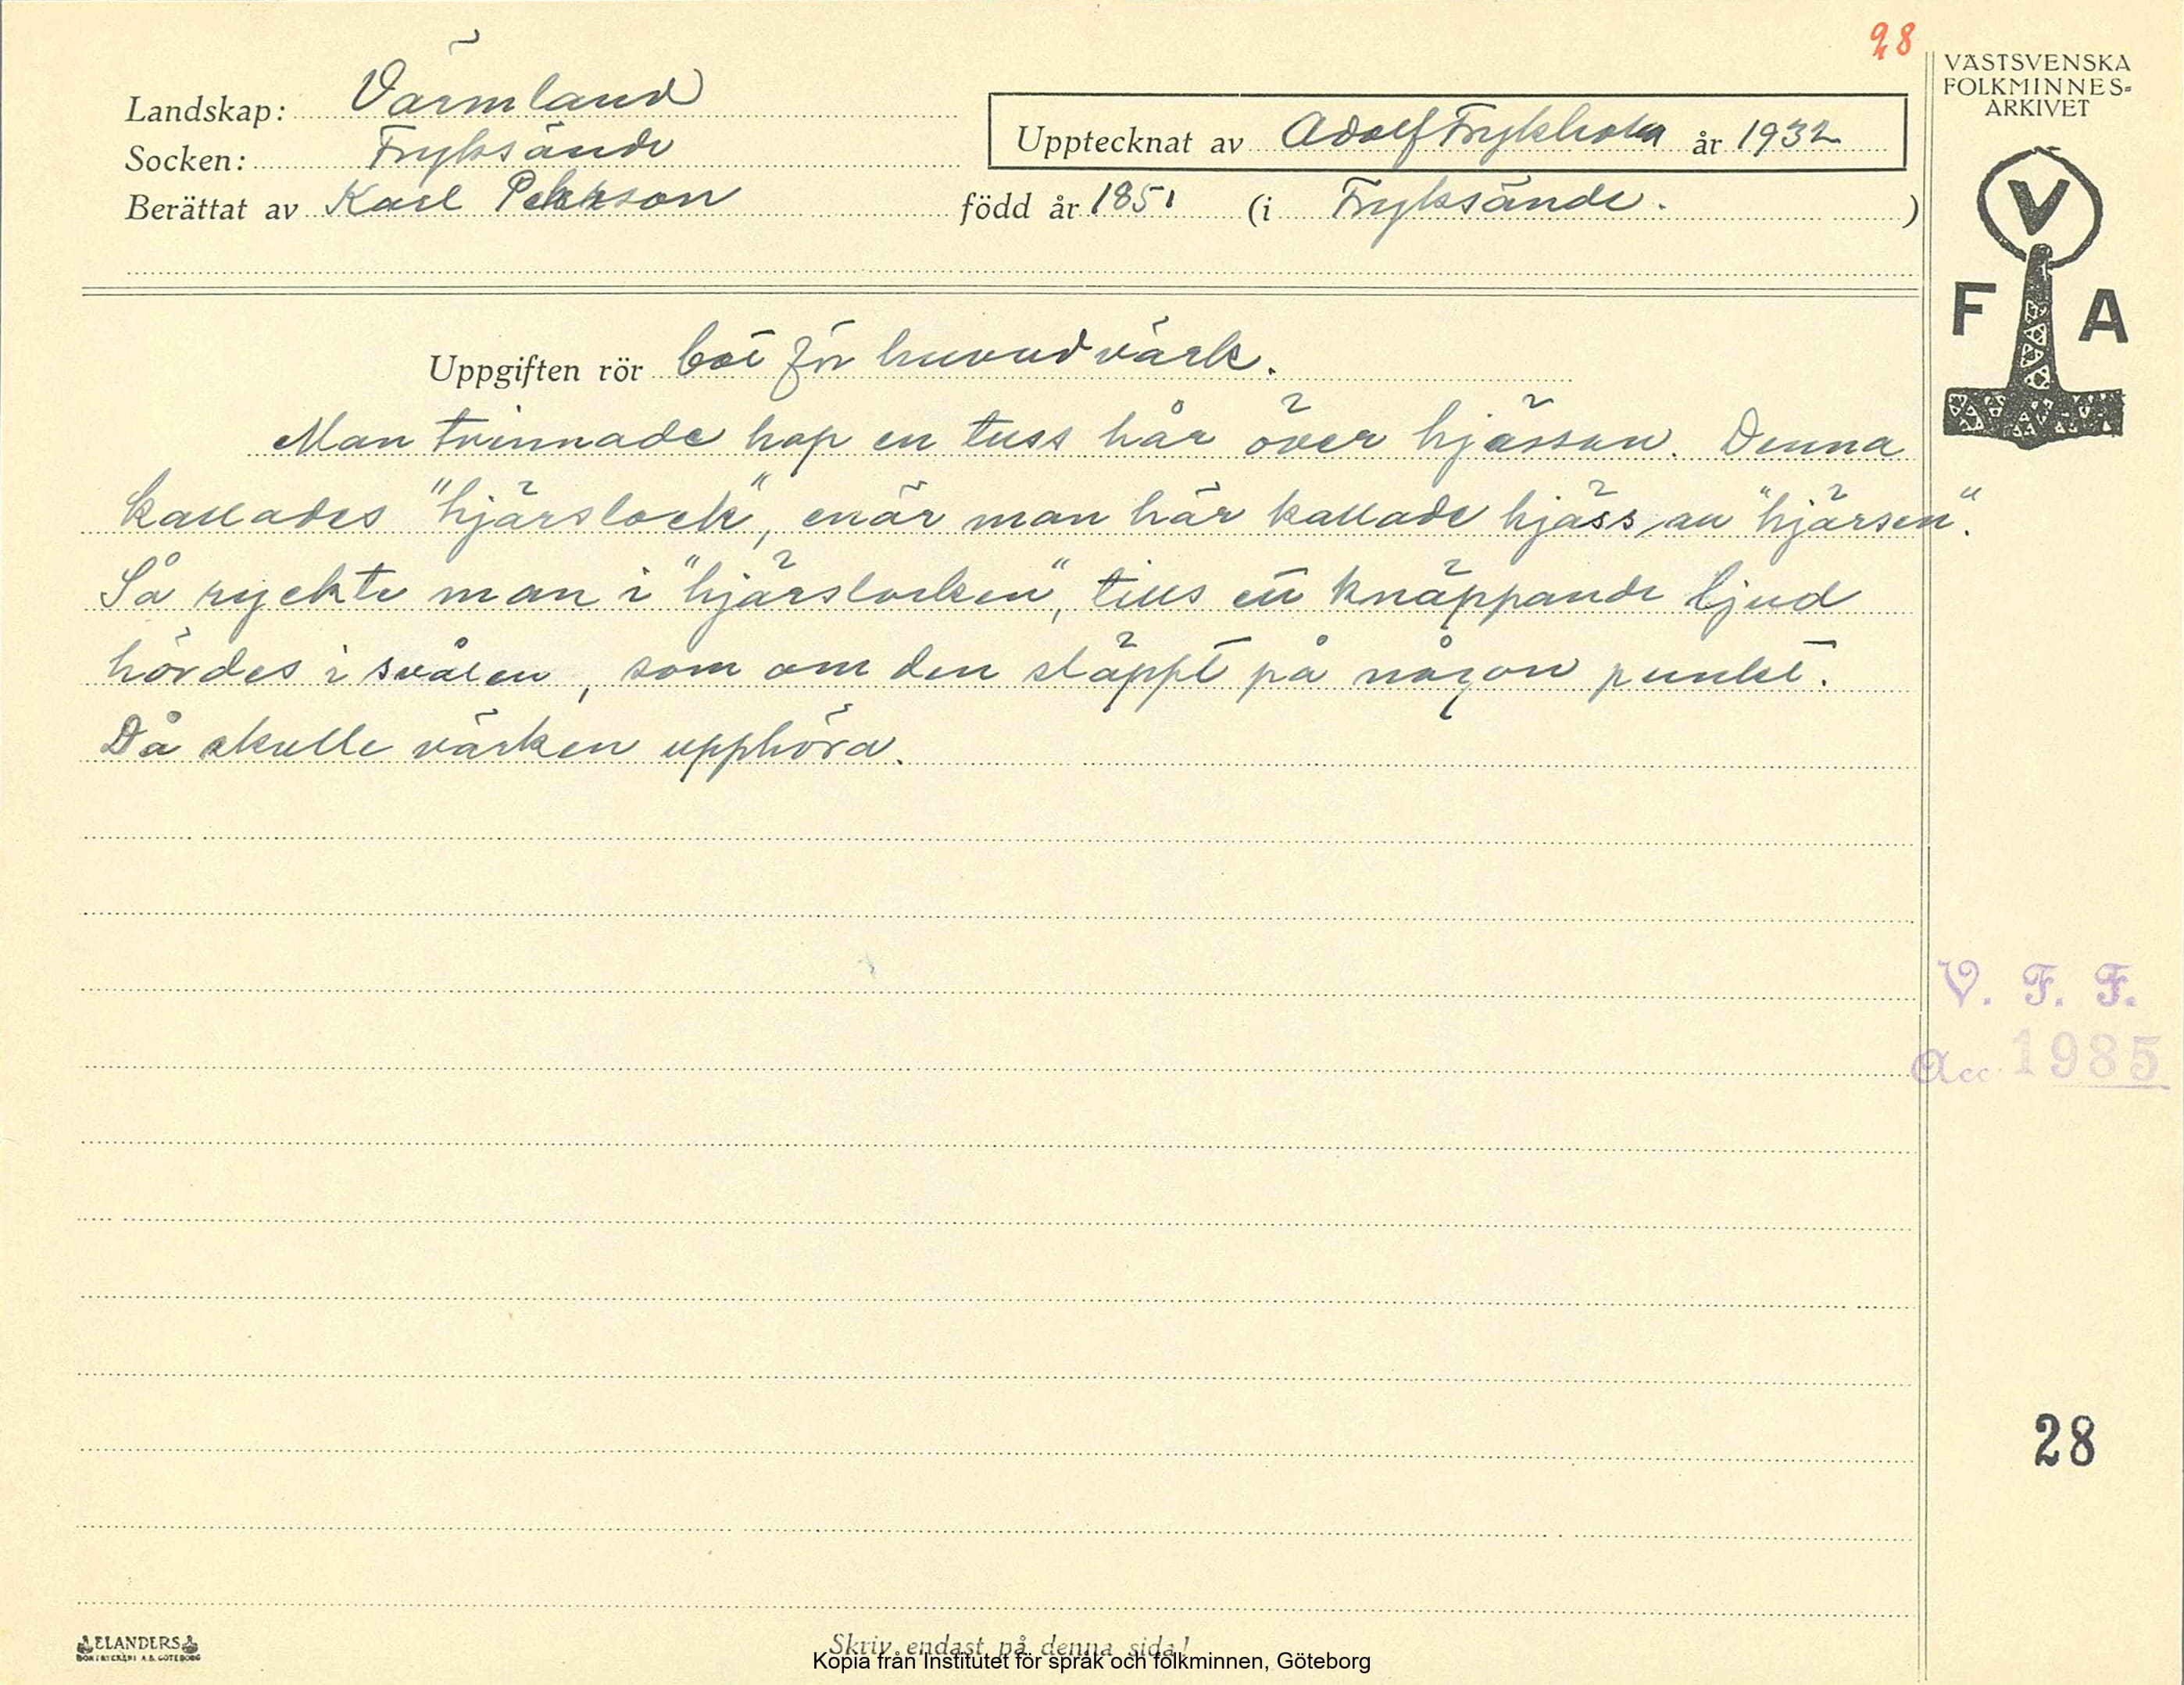 28
VÄSTSVENSKA
FOLKMINNES-
ARKIVET
Landskap: Värmland
Socken: Fryksände
Upptecknat av Adolf Frykholm år 1932
Berättat av Karl Pettersson född år 1851 (i Fryksände. )
V
F A
Uppgiften rör bot för huvudvärk.
Man tvinnade hop en tuss hår över hjässan. Denna
kallades "hjärslock", enär man här kallade hjässan "hjärsen".
Så ryckte man i "hjärslocken", tills ett knäppande ljud
hördes i svålen, som om den släppt på någon punkt.
Då skulle värken upphöra.
V. F. F.
Acc 1985
28
ELANDERS
BOKTRYCKERI A.B. GÖTEBORG
Skriv endast på denna sida!
Kopia från Institutet för språk och folkminnen, Göteborg